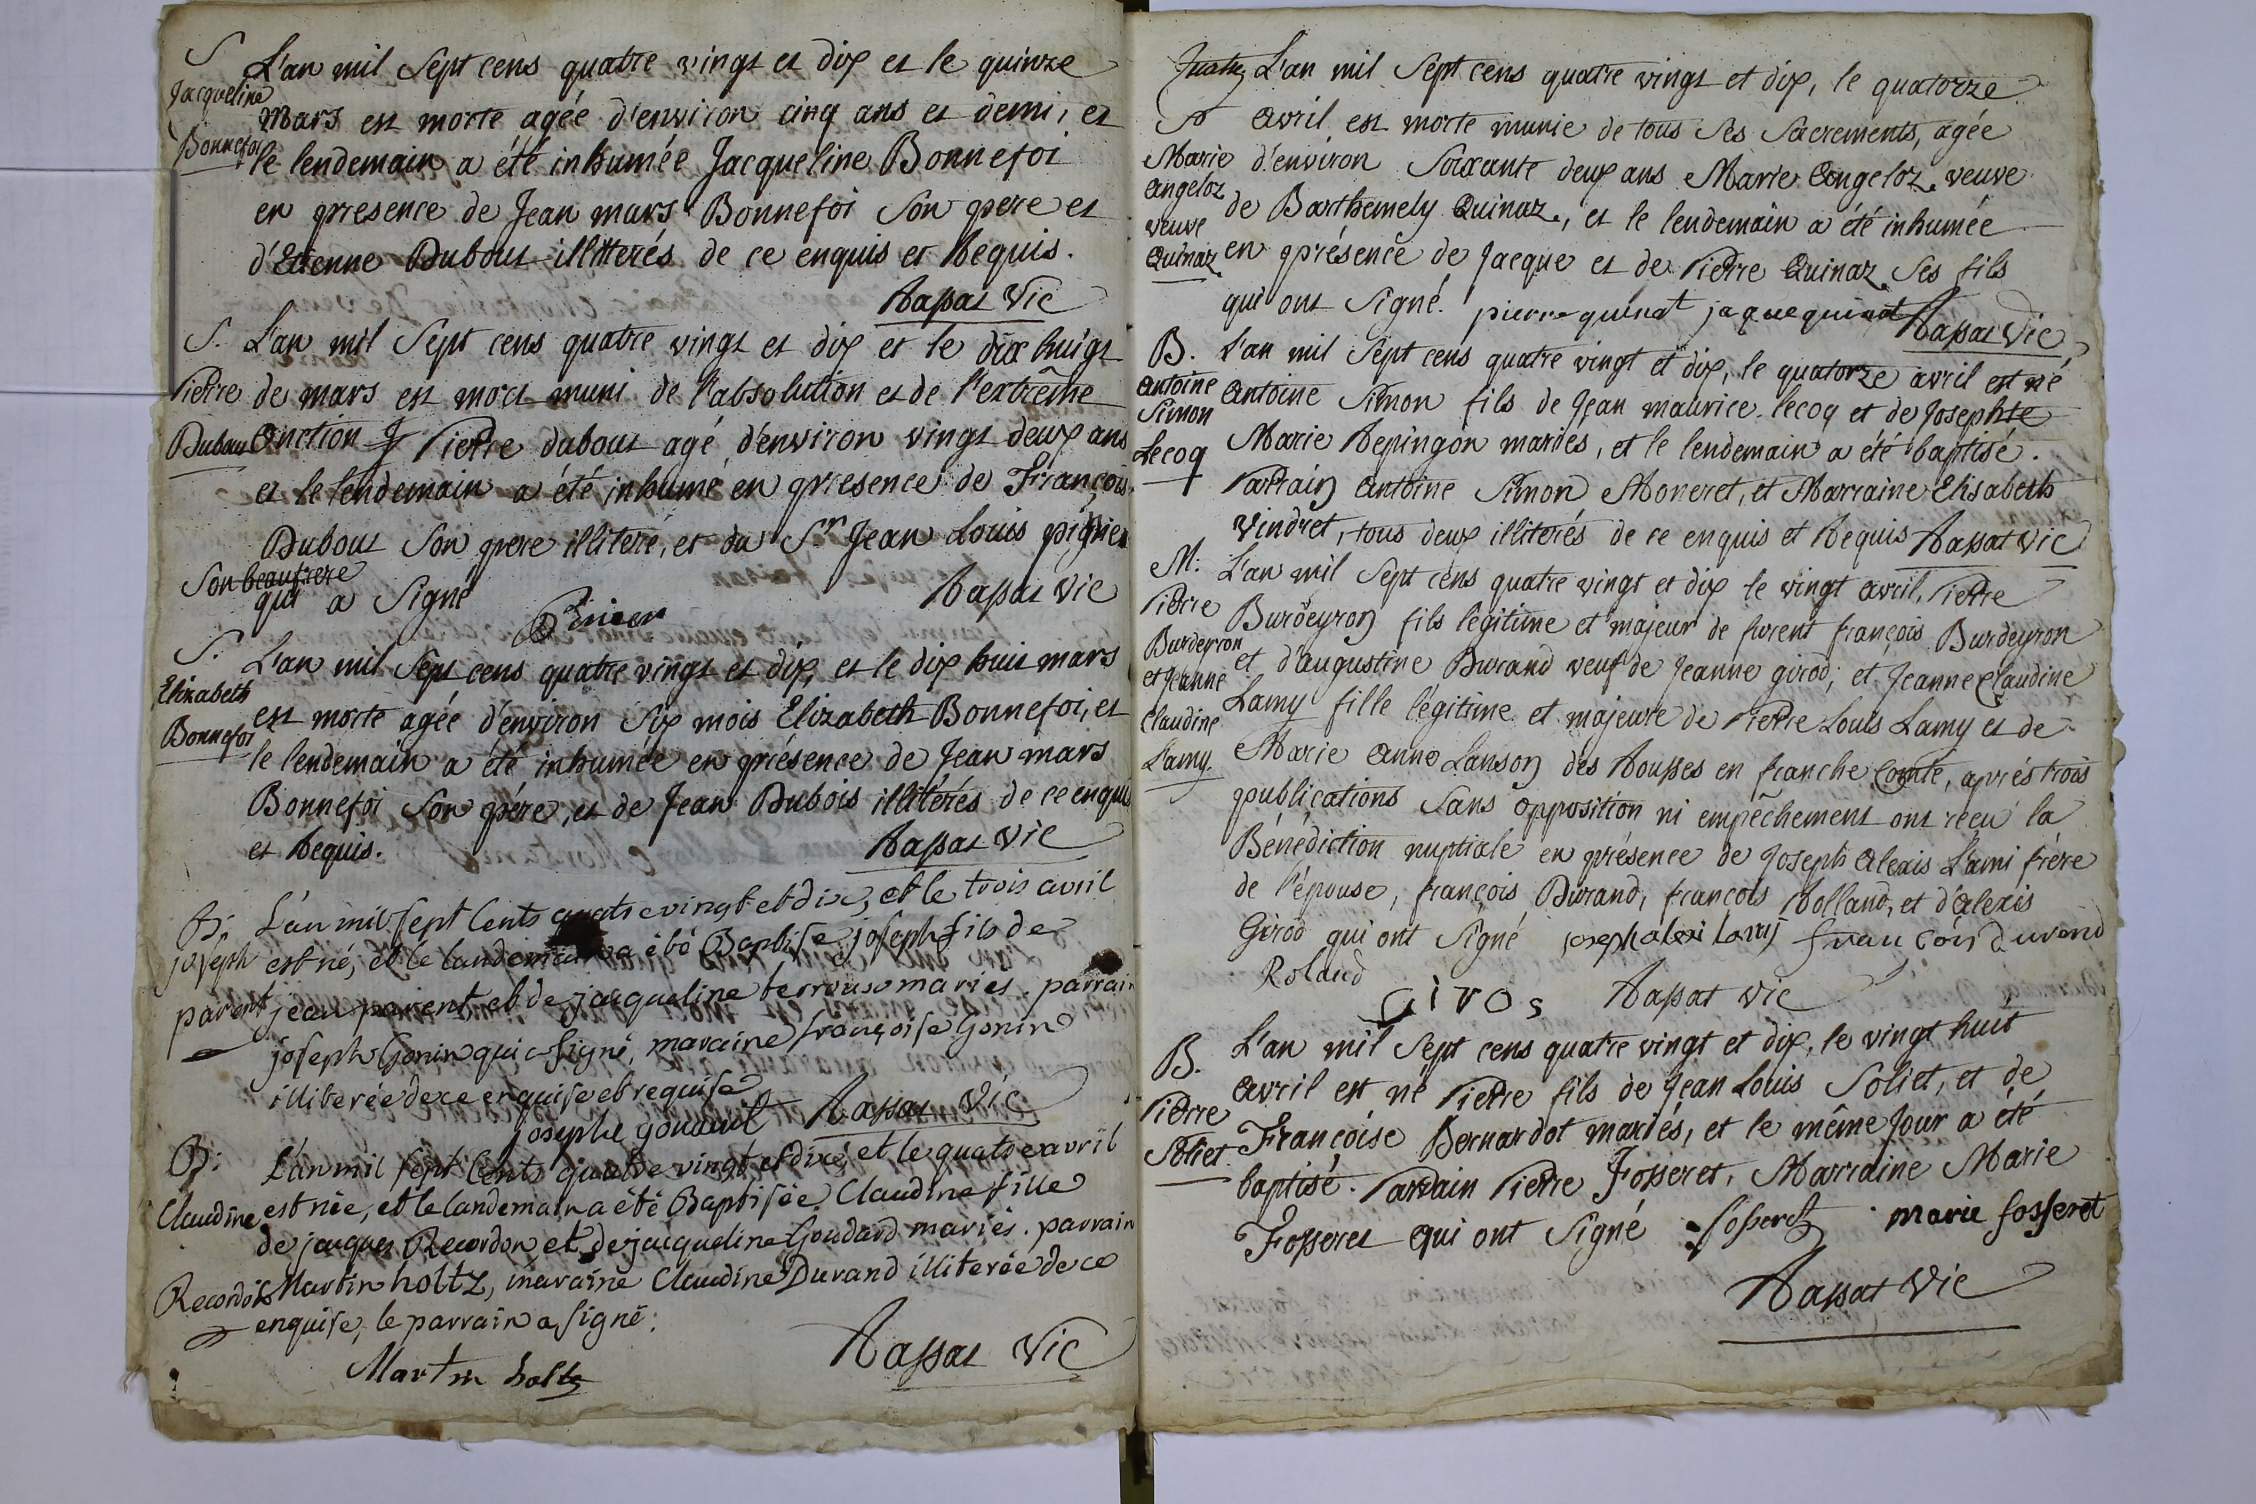 S L'an mil Sept cens quatre vingt et dix et le quinze
Jacqueline mars est morte agée d'environ cinq ans et demi, et
Bonnefoi le lendemain a été inhumée Jacqueline Bonnefoi
en presence de Jean mars Bonnefoi Son pere et
d'Etienne Dubout illitterés de ce enquis et Requis.
Rassat Vic
S. L'an mil Sept cens quatre vingt et dix et le dix huigt
Pierre de mars est mort muni de l'absolution et de l'extrême
Dubout onction Pierre dubout agé d'environ vingt deux ans
et le lendemain a été inhumé en presence de François
Dubout Son pere illiteré, et du Sr Jean Louis pignier
Son beaufrere
qui a Signé Rassat Vic
S. L'an mil Sept cens quatre vingt et dix, et le dix huit mars
Elizabeth est morte agée d'environ Six mois Elizabeth Bonnefoi, et
Bonnefoi le lendemain a été inhumée en présence de Jean mars
Bonnefoi Son pére, et de Jean Dubois illitérés de ce enqui
et Requis. Rassat Vic
B: L'an mil sept Cents quatrevingt et dix, et le trois avril
joseph est né, et le landemain a été Baptisé joseph fils de
parent jean parent et de jacqueline terroux mariés. parrain
joseph Gonin qui a signé, maraine françoise Gonin
illiterée de ce enquise et requise
josephe gonauit Rassat Vic
B: L'an mil sept Cents quatre vingt et dix, et le quatre avril
Claudine est née, et le landemain a été Baptisée Claudine fille
de jacques Recordon et de jacqueline Goudard mariés. parrain
Recordon Martin holtz, maraine Claudine Durand illiterée de ce
enquise, le parrain a signé:
Martin holtz Rassat Vic
L'an mil Sept cens quatre vingt et dix, le quatorze
S avril est morte munie de tous Ses Sacrements, agée
Marie d'environ Soixante deux ans Marie Angeloz veuve
angeloz de Barthemely Quinaz, et le lendemain a été inhumée
veuve
Quinaz en présence de Jacque et de Pierre Quinaz Ses fils
qui ont Signé. pierre quinat jaque quinat Rassat Vic
B. L'an mil Sept cens quatre vingt et dix, le quatorze avril est né
antoine Antoine Simon fils de Jean maurice lecoq et de Josephte
Simon
Lecoq Marie Repingon mariés, et le lendemain a été baptisé.
Parrain Antoine Simon Moneret, et Marraine Elisabeth
Vindret, tous deux illiterés de ce enquis et Requis Rassat Vic
M: L'an mil Sept cens quatre vingt et dix le vingt avril, Pierre
Pierre Burdeyron fils légitime et majeur de furent françois Burdeyron
Burdeyron et d'augustine Durand veuf de Jeanne girod, et Jeanne Claudine
et Jeanne
Claudine Lamy fille légitime et majeure de Pierre Louis Lamy et de
Lamy. Marie Anne Lanson des Rousses en franche Comté, aprés trois
publications Sans opposition ni empêchement ont reçu la
Bénédiction nuptiale en présence de Joseph Alexis Lami frére
de l'épouse, françois Durand, françois Rolland, et d'Alexis
Girod qui ont Signé joseph alexi lamy françois durand
Roland Giros Rassat Vic
B. L'an mil Sept cens quatre vingt et dix, le vingt huit
Pierre avril est né Pierre fils de Jean Louis Soliet, et de
Soliet Françoise Bernardot mariés, et le même Jour a été
baptisé. Parrain Pierre Fosseret, Marraine Marie
Fosseret qui ont Signé fosseret marie fosseret
Rassat Vic